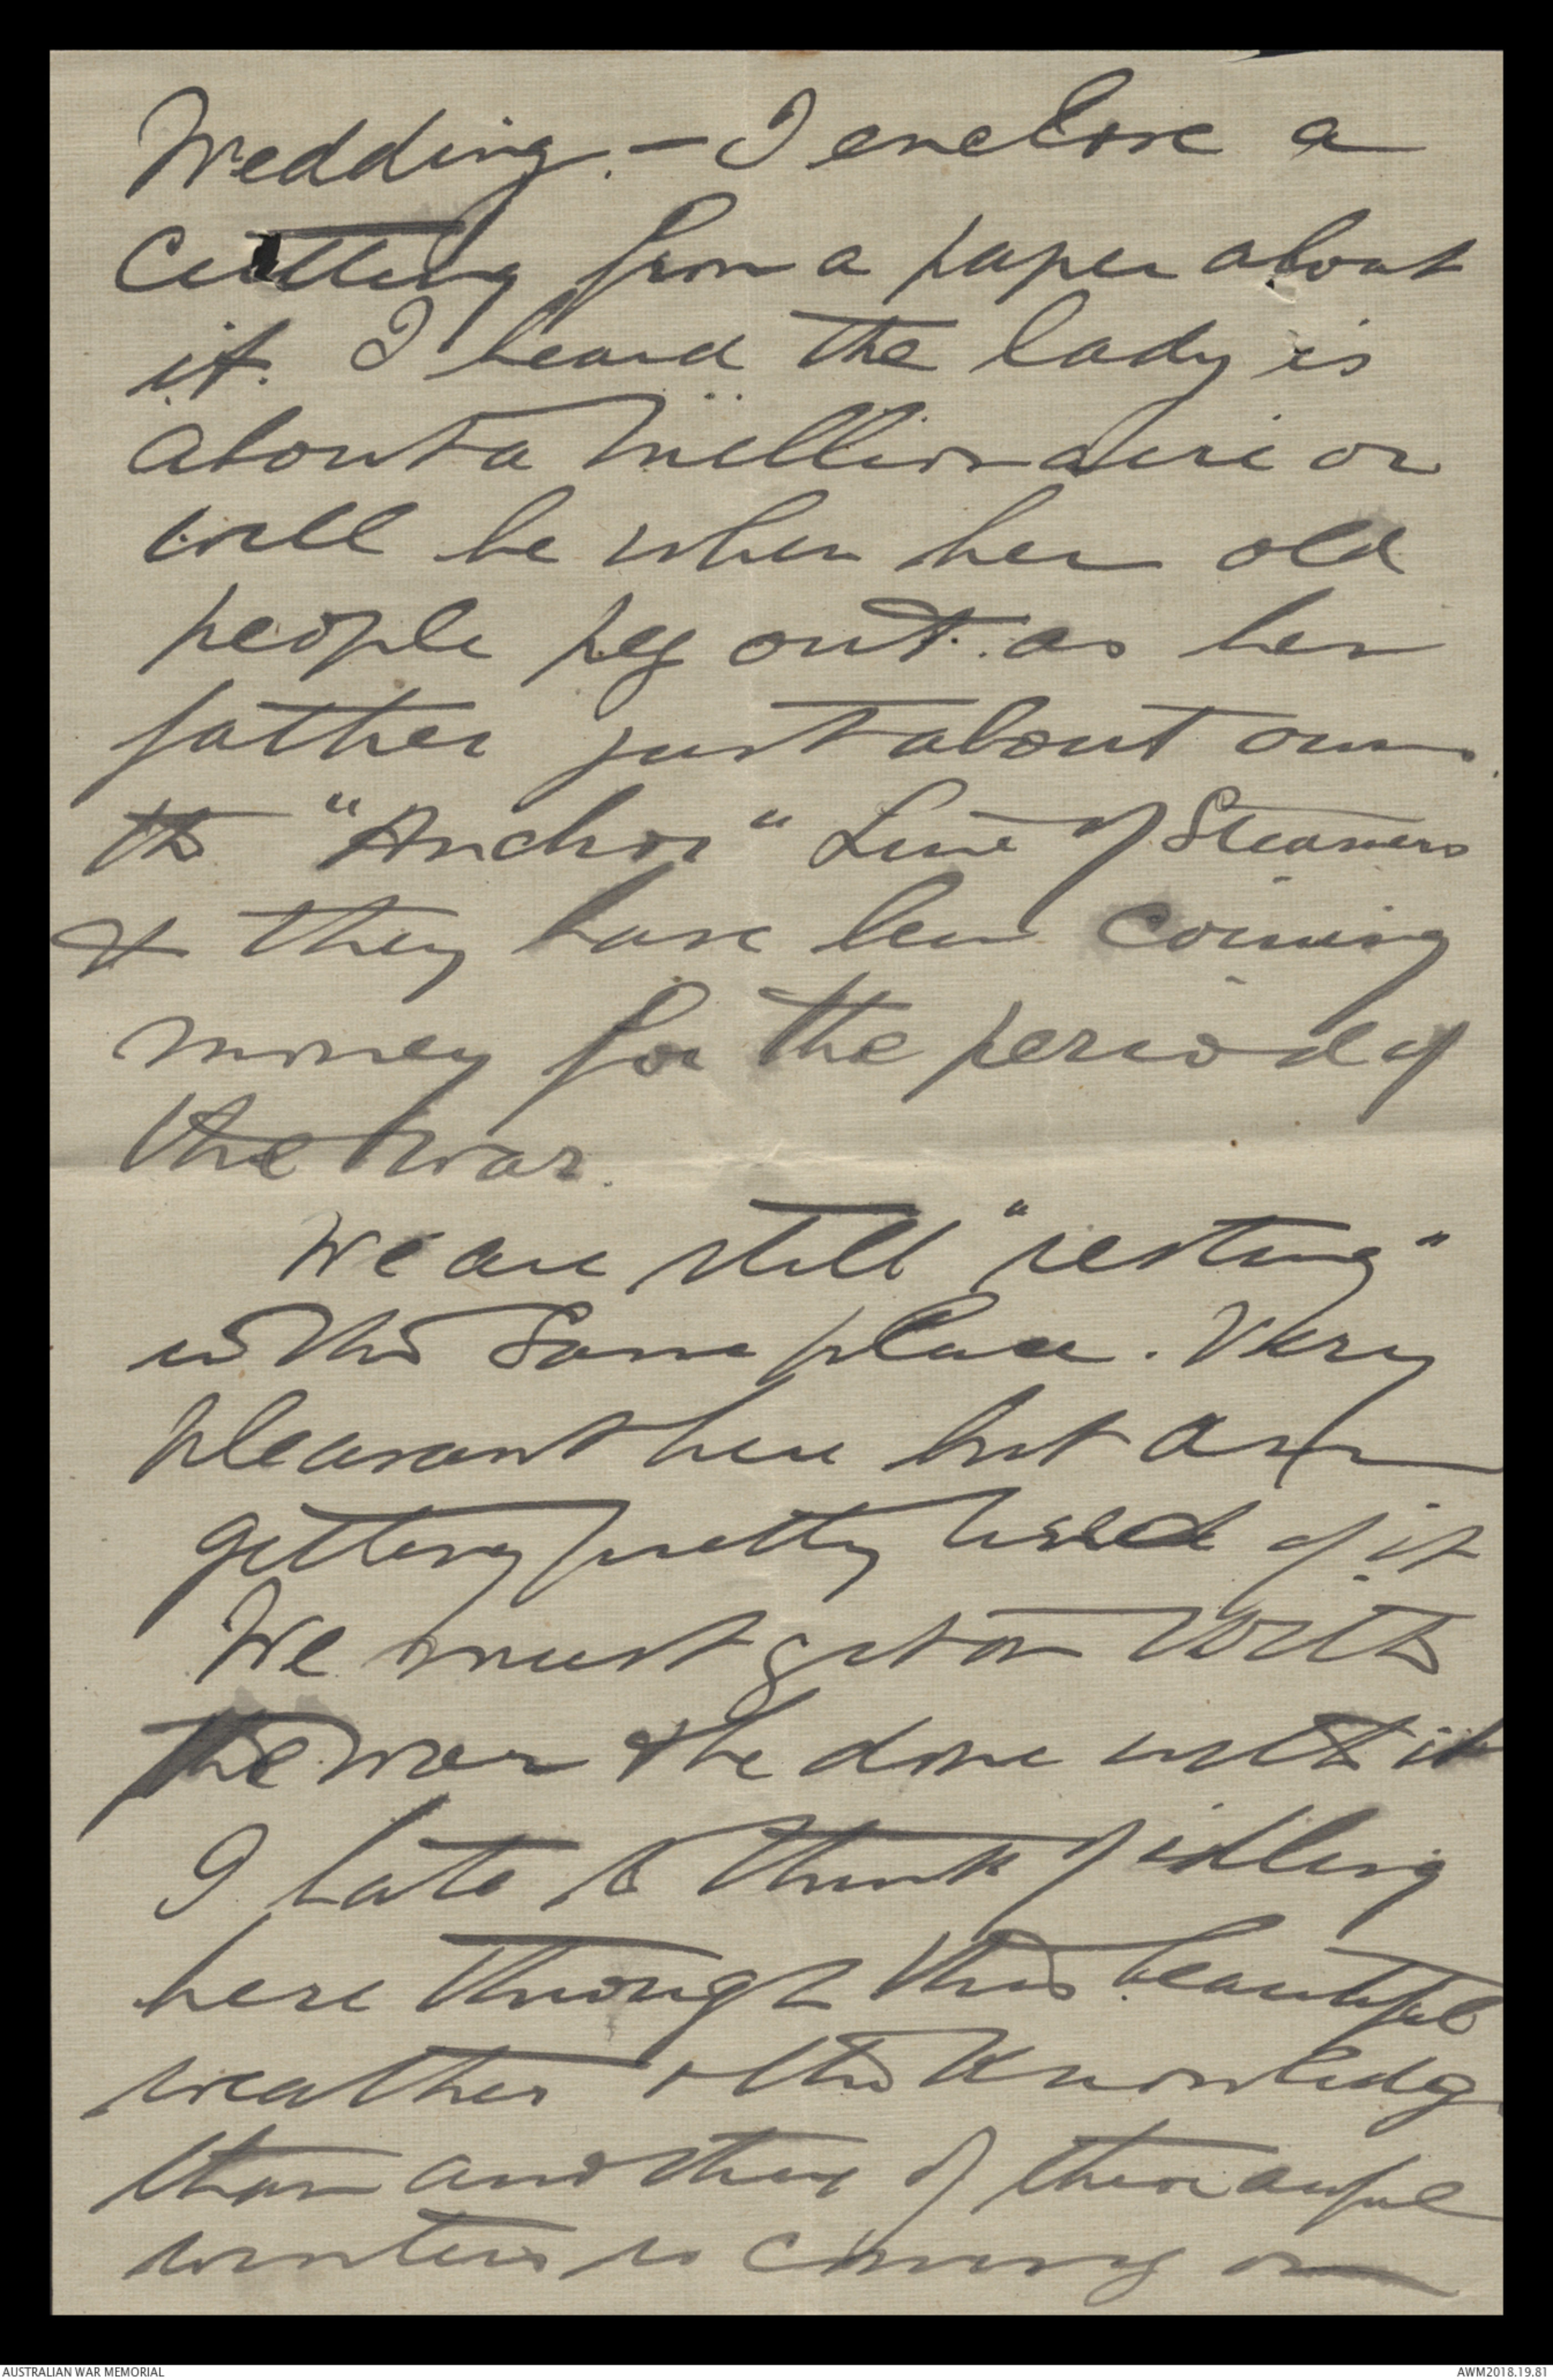 Wedding. - I enclose a
Cutting from a paper about
it. I heard the lady is
about a millionaire or
will be when her old
people peg out as her
father just about owns
the "Anchor" Line of Steamers
& they have been coining
money for the period of
the war.
We are still "resting"
in the same place. Very
pleasant here but am
getting pretty tired of it
We must get on with
the war & be done with it
I hate to think of idling
here through this beautiful
weather & the knowledge
that another of these awful
winters is coming on
AUSTRALIAN WAR MEMORIAL
AWM2018.19.81